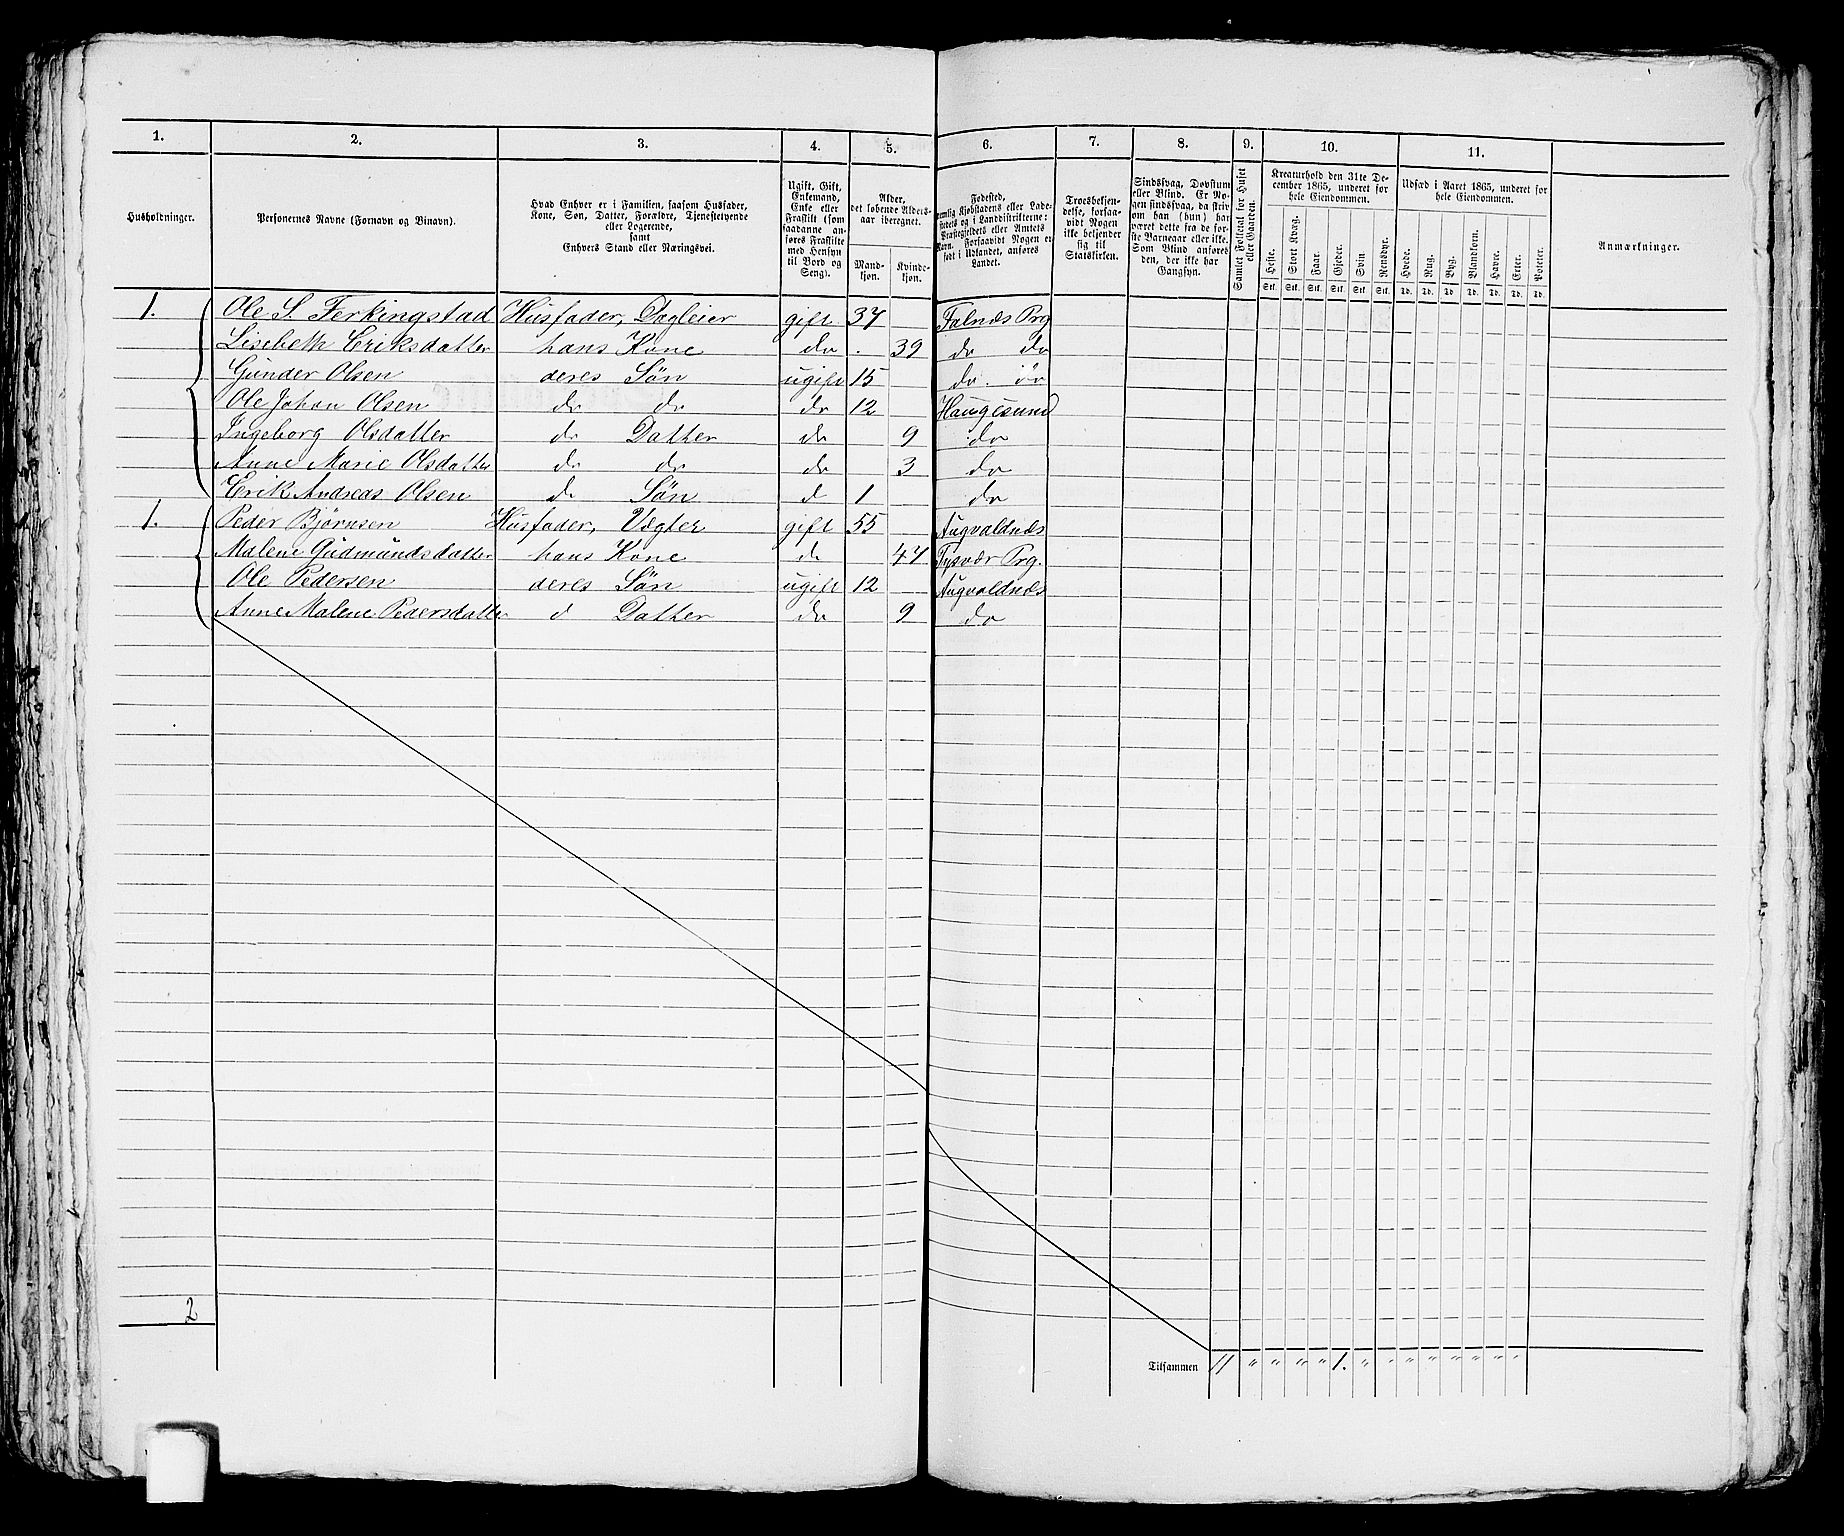 1. 2. 3. 4. 5. 6. 7. 8. 9. 10. 11.
Husholdninger.
Personernes Navne (Fornavn og Binavn).
Hvad Enhver er i Familien, saasom Husfader,
Kone, Søn, Datter, Forældre, Tjenestetyende
eller Logerende,
samt
Enhvers Stand eller Næringsvei.
Ugift, Gift,
Enkemand,
Enke eller
Fraskilt (som
saadanne an-
føres Fraskilte
med Hensyn
til Bord og
Seng).
Alder,
det løbende Alders-
aar iberegnet.
Mand-
kjøn.
Kvinde-
kjøn.
Fødested,
nemlig Kjøbstadens eller Lade-
stedets og i Landdistrikterne:
Præstegjeldets eller Amtets
Navn. Forsaavidt Nogen er
født i Udlandet, anføres
Landet.
Troesbekjen-
delse, forsaa-
vidt Nogen
ikke bekjender
sig til
Statskirken.
Sindssvag, Døvstum
eller Blind. Er No-
gen sindssvag, da skriv
om han (hun) har
været dette fra de før-
ste Barneaar eller ikke.
Som Blind anføres
den, der ikke har
Gangsyn.
Samlet Folketal for Huset
eller Gaarden.
Kreaturhold den 31te De-
cember 1865, underet for
hele Eiendommen.
Heste. Stort Kvæg. Faar. Gjeder. Svin. Rensdyr.
Stk. Stk. Stk. Stk. Stk. Stk.
Udsæd i Aaret 1865, underet for
hele Eiendommen.
Hvede. Rug. Byg. Blandkorn. Havre. Erter. Poteter.
Td. Td. Td. Td. Td. Td. Td.
Anmærkninger.
1. Ole S. Ferkingstad Husfader, Dagleier gift 37 Falnæs Prg
Lisebeth Eriksdatter hans Kone do . 39 do do
Gunder Olsen deres Søn ugift 15 do. do
Ole Johan Olsen do do do 12 Haugesund
Ingeborg Olsdatter do Datter do 9 do
Anne Marie Olsdatter do do do 3 do
Erik Andreas Olsen d Søn d 1 do
1. Peder Bjørnsen Husfader, Vægter gift 55 Augvaldnæs
Malene Gudmundsdatter hans Kone d 47 Tysvær Prg.
Ole Pedersen deres Søn ugift 12 Augvaldnæs
Anne Malene Pedersdatter d Datter do 9 do
2
Tilsammen 11 " " " " 1. " " " " " " " "